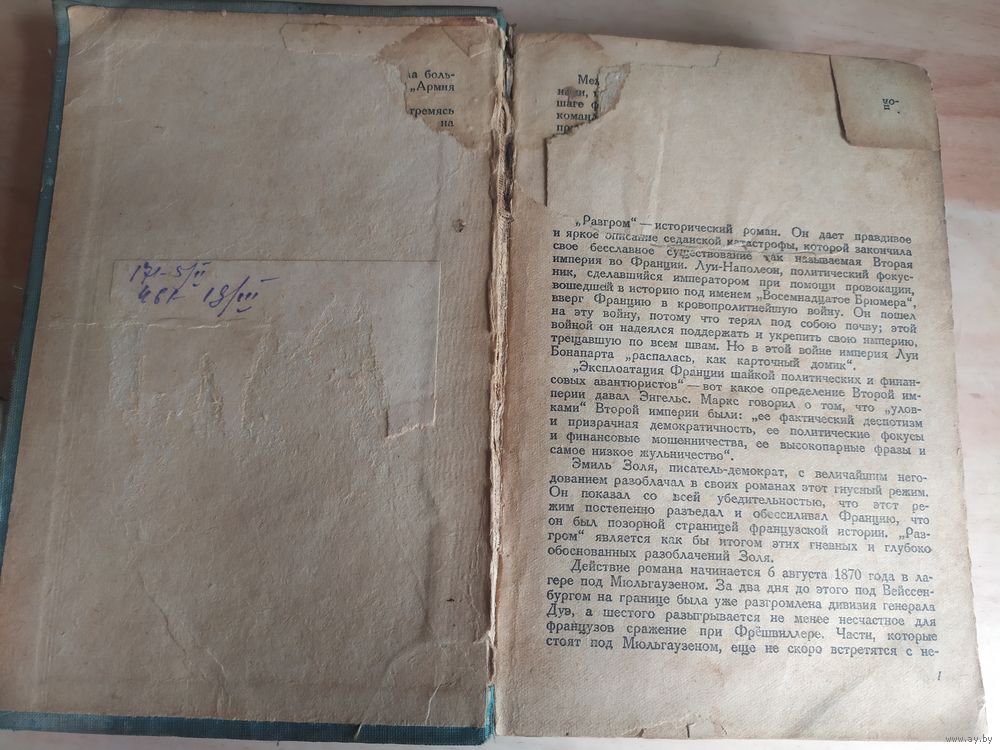 ла боль-
„Армия
тремясь
на
17-5/II
18/III
Меж
шаге ф
команд
„Разгром“ — исторический роман. Он дает правдивое
и яркое описание седанской катастрофы, которой закончила
свое бесславное существование так называемая Вторая
империя во Франции. Луи-Наполеон, политический фокус-
ник, сделавшийся императором при помощи провокации,
вошедшей в историю под именем „Восемнадцатое Брюмера“,
вверг Францию в кровопролитнейшую войну. Он пошел
на эту войну, потому что терял под собою почву; этой
войной он надеялся поддержать и укрепить свою империю,
трещавшую по всем швам. Но в этой войне империя Луи
Бонапарта „распалась, как карточный домик“.
„Эксплоатация Франции шайкой политических и финан-
совых авантюристов“ — вот какое определение Второй им-
перии давал Энгельс. Маркс говорил о том, что „улов-
ками“ Второй империи были: „ее фактический деспотизм
и призрачная демократичность, ее политические фокусы
и финансовые мошенничества, ее высокопарные фразы и
самое низкое жульничество“.
Эмиль Золя, писатель-демократ, с величайшим него-
дованием разоблачал в своих романах этот гнусный режим.
Он показал со всей убедительностью, что этот ре-
жим постепенно разъедал и обессиливал Францию, что
он был позорной страницей французской истории. „Раз-
гром“ является как бы итогом этих гневных и глубоко
обоснованных разоблачений Золя.
Действие романа начинается 6 августа 1870 года в ла-
гере под Мюльгаузеном. За два дня до этого под Вейссен-
бургом на границе была уже разгромлена дивизия генерала
Дуэ, а шестого разыгрывается не менее несчастное для
французов сражение при Фрёшвиллере. Части, которые
стоят под Мюльгаузеном, еще не скоро встретятся с не-
1
www.ay.by